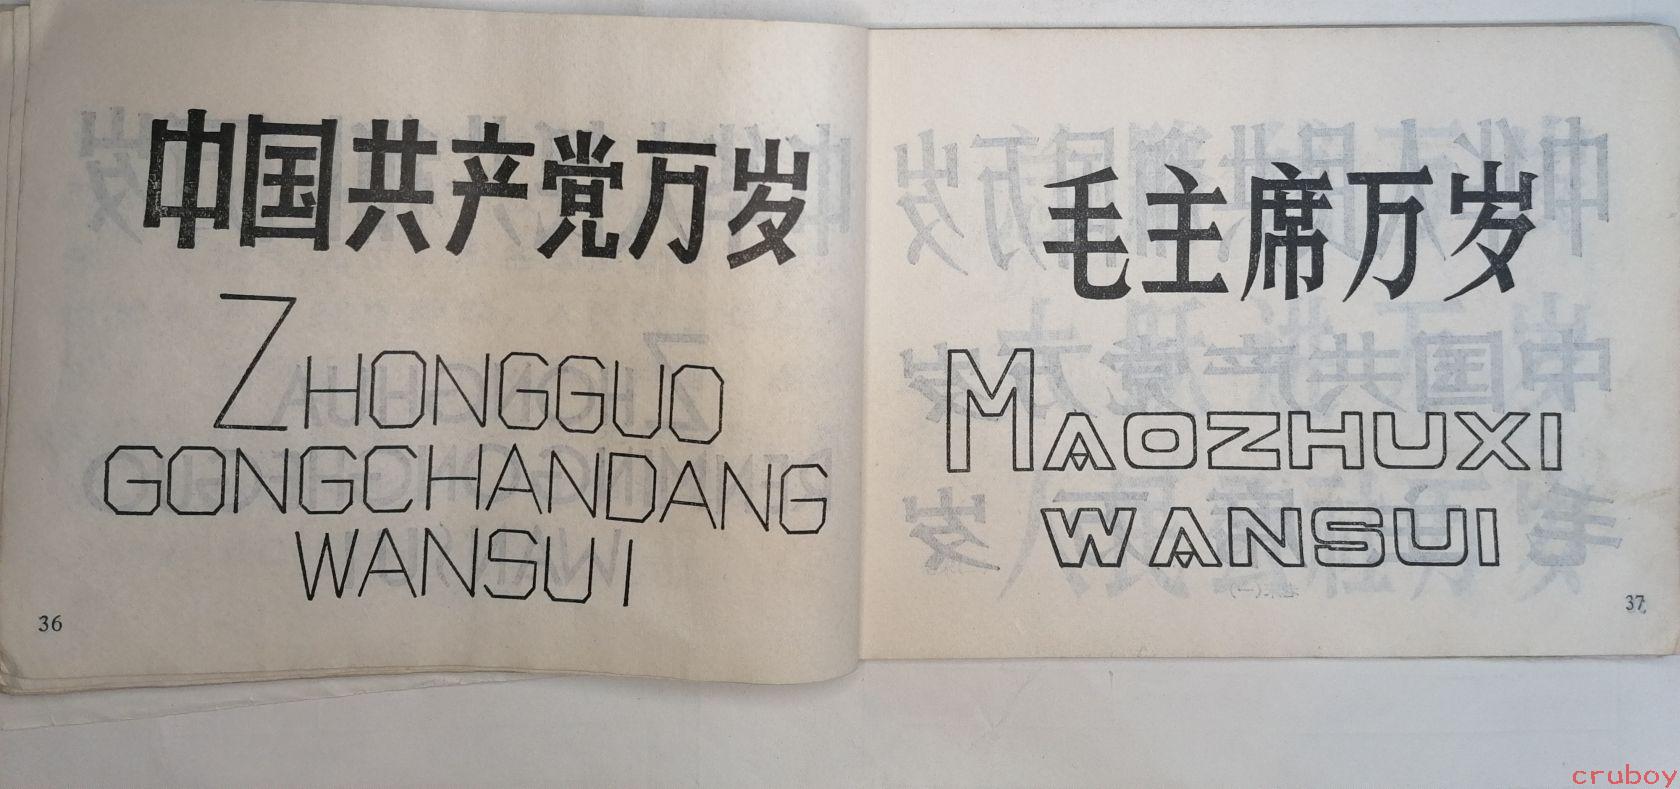 中国共产党万岁
ZHONGGUO
GONGCHANDANG
WANSUI
36
毛主席万岁
MAOZHUXI
WANSUI
37
cruboy